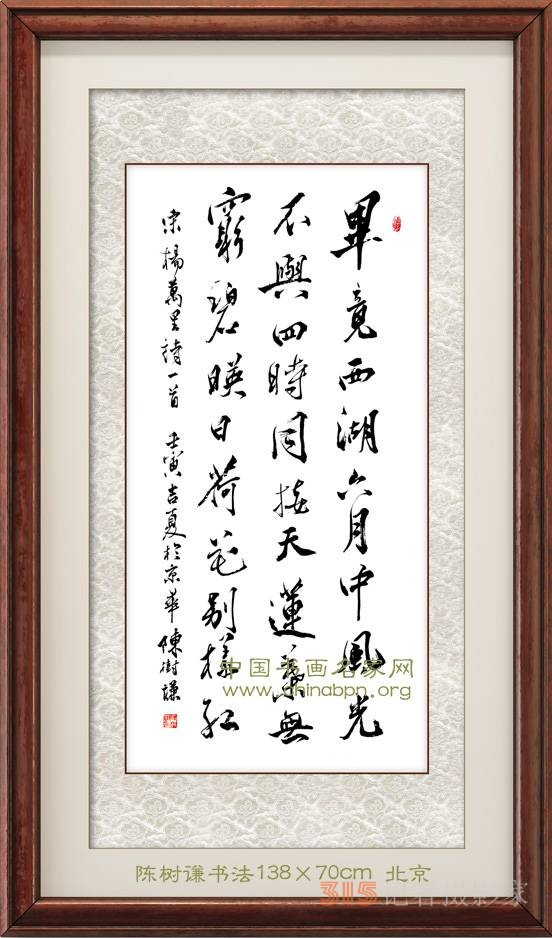 畢竟西湖六月中風光
不與四時同接天蓮葉無
窮碧暎日荷花别樣紅
宋楊萬里詩一首 壬寅吉夏於京華 陳樹謙
中国书画名家网
www.chinabpn.org
陈树谦书法138×70cm 北京
315记者摄影家